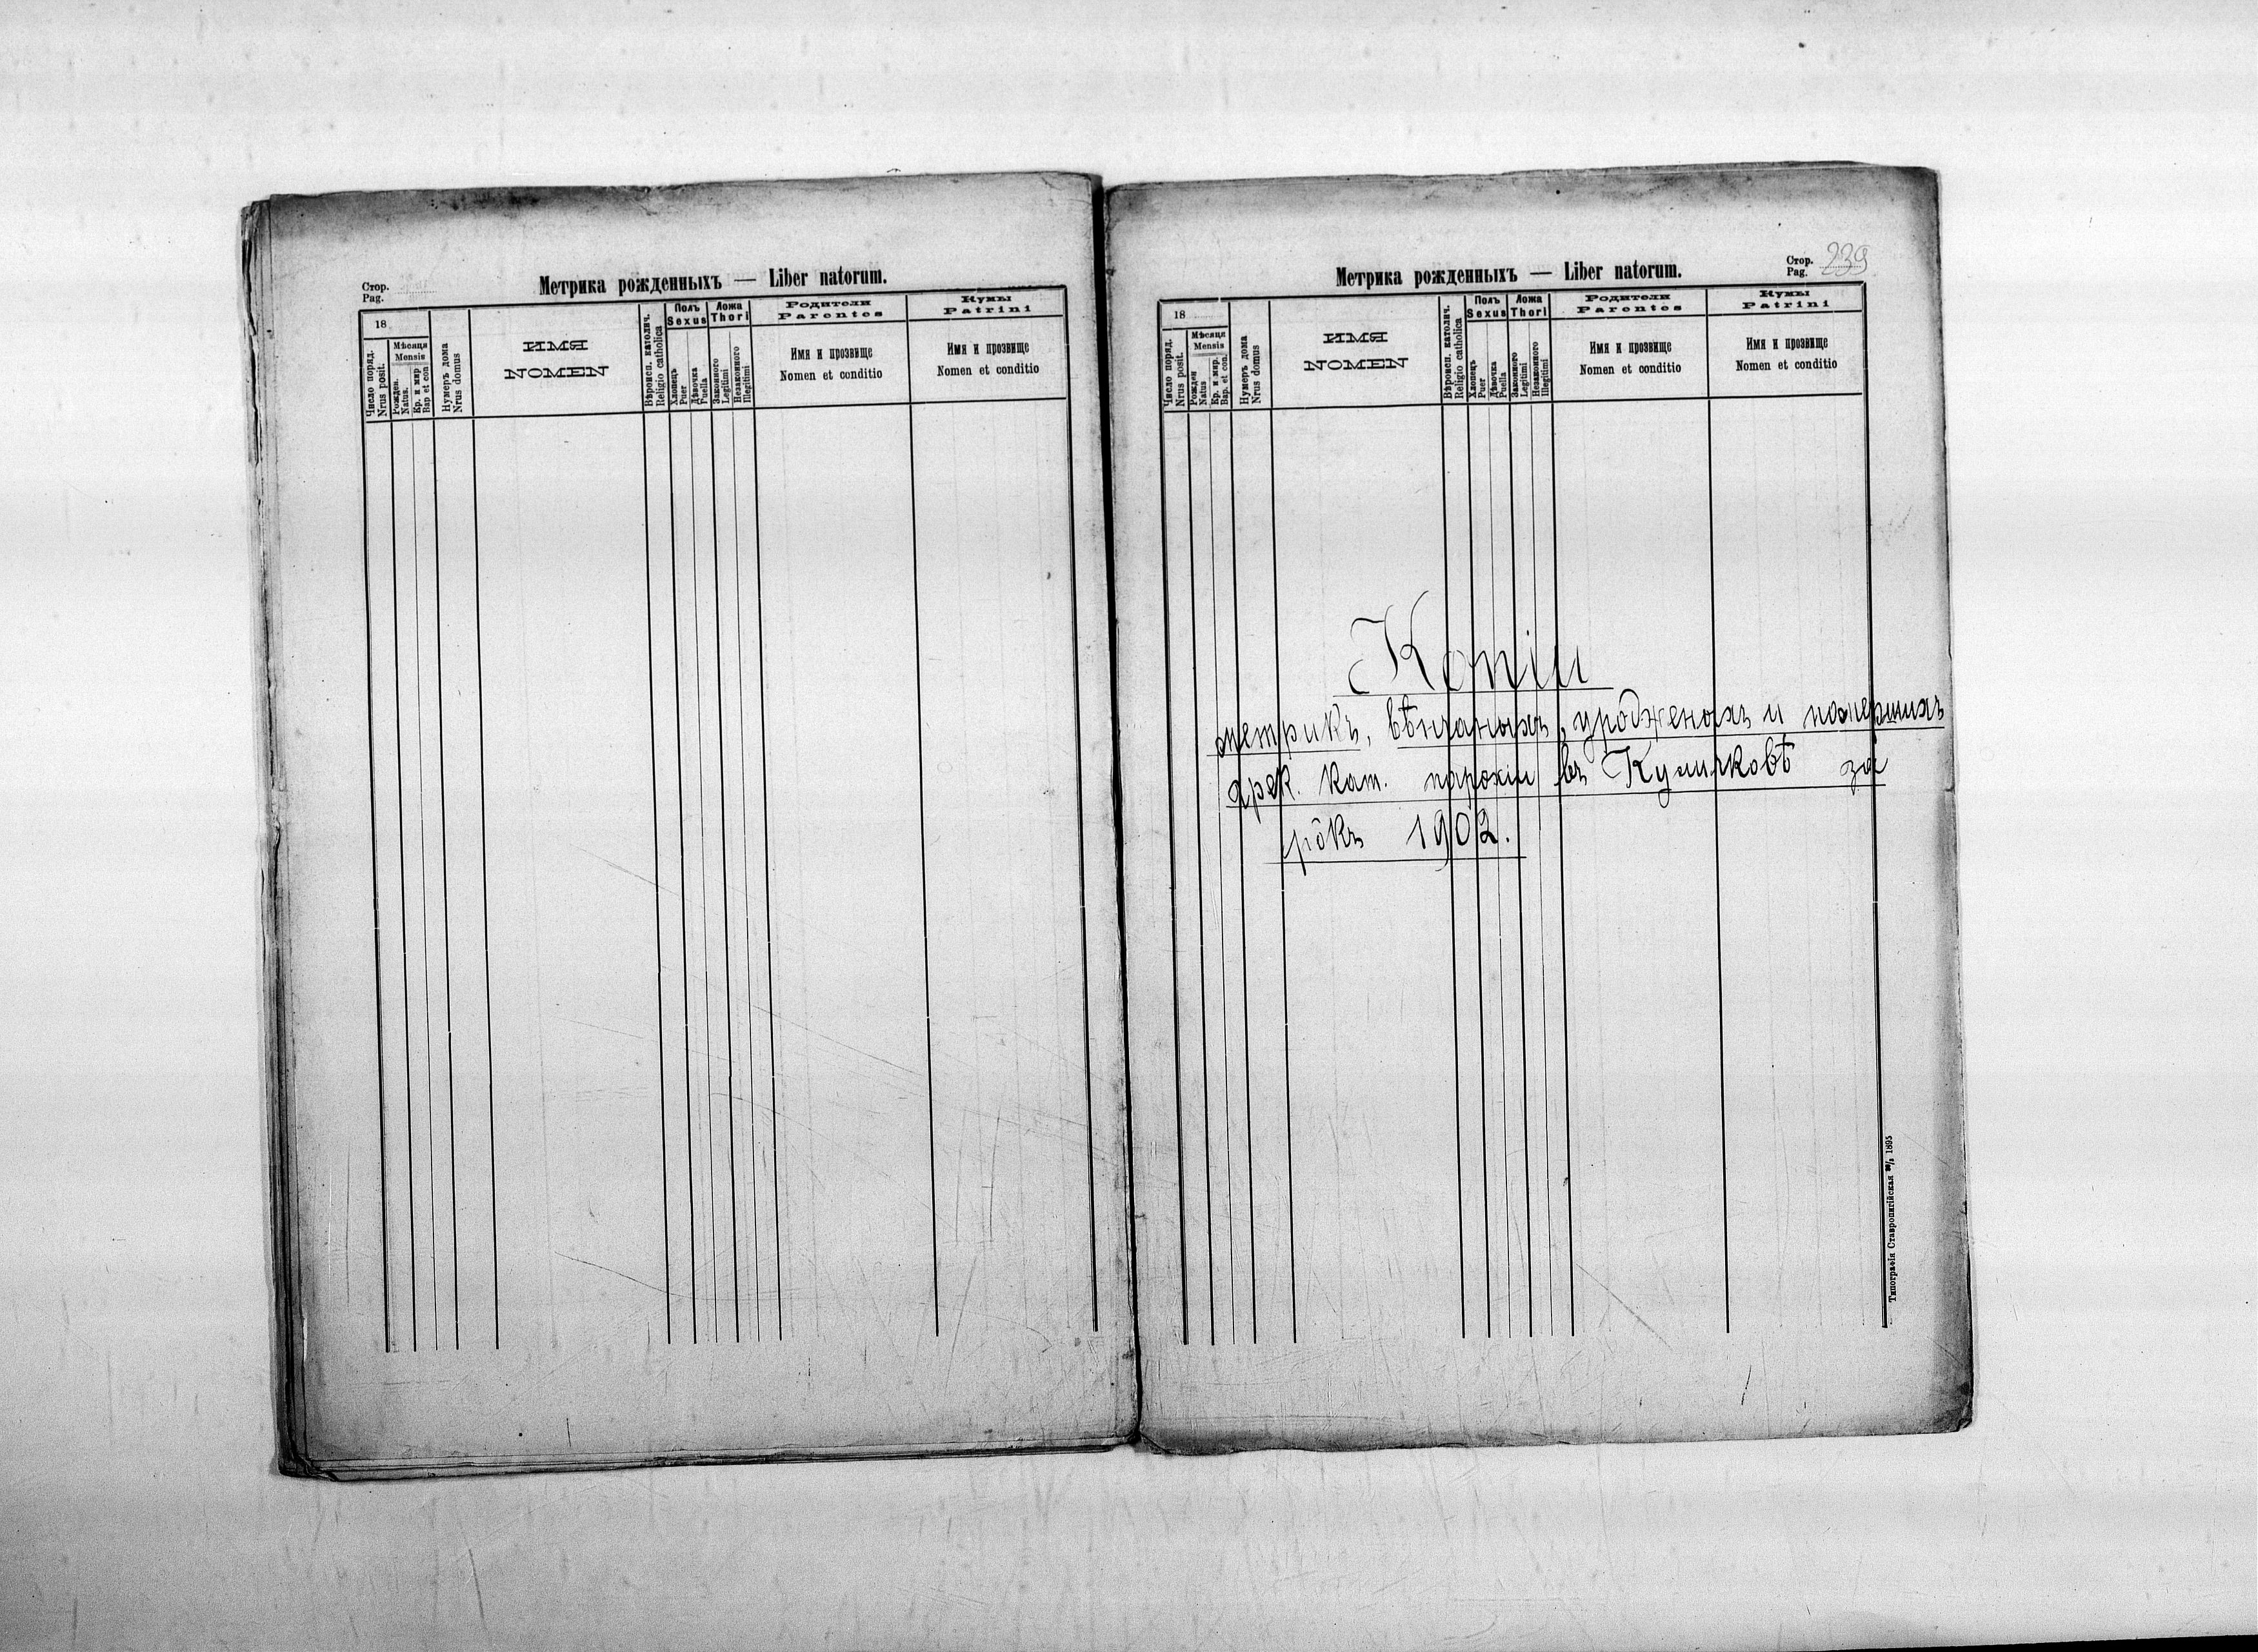 Стор.
Pag.
Метрика рожденныхъ — Liber natorum.
18
Число поряд.
Nrus posit.
Мѣсяця
Mensis
Рожден.
Natus
Кр. и мир
Bap et con
Нумеръ дома
Nrus domus
ИМЯ
NOMEN
Вѣроисп. католич.
Religio catholica
Полъ
Sexus
Хлопецъ
Puer
Дѣвочка
Puella
Ложа
Thori
Законного
Legitimi
Незаконного
Illegitimi
Родители
Parentes
Имя и прозвище
Nomen et conditio
Кумы
Patrini
Имя и прозвище
Nomen et conditio
Метрика рожденныхъ — Liber natorum.
Стор.
Pag. 239
18
Число поряд.
Nrus posit.
Мѣсяця
Mensis
Рожден
Natus
Кр. и мир.
Bap. et con.
Нумеръ дома
Nrus domus
ИМЯ
NOMEN
Вѣроисп. католич.
Religio catholica
Полъ
Sexus
Хлопецъ
Puer
Дѣвочка
Puella
Ложа
Thori
Законного
Legitimi
Незаконного
Illegitimi
Родители
Parentes
Имя и прозвище
Nomen et conditio
Кумы
Patrini
Имя и прозвище
Nomen et conditio
Копіи
метрикъ, вѣнчаныхъ, уродженыхъ и помершихъ
грек. кат. парохіи въ Куличковѣ за
рôкъ 1902.
Типографія Ставропигійская 1895